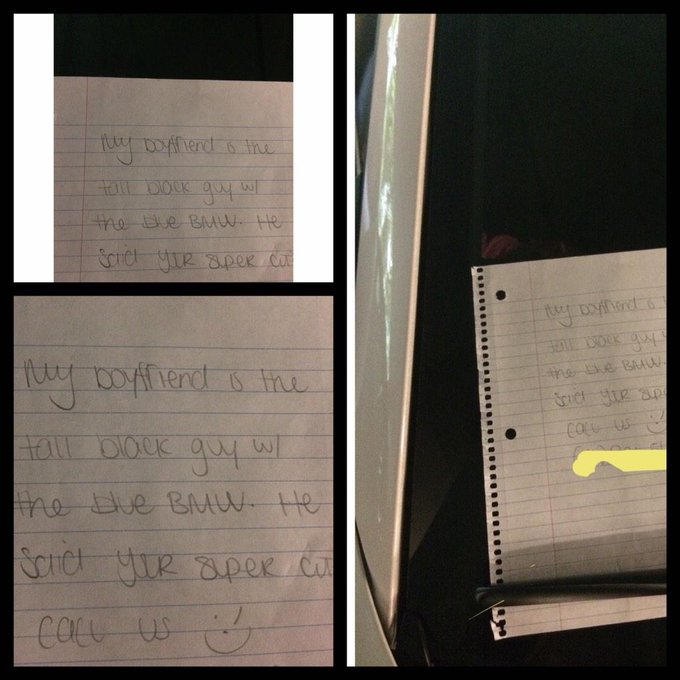 My boyfriend is the
tall black guy w/
the blue BMW. He
said YUR super cu
My boyfriend is the
tall black guy w/
the blue BMW. He
said YUR super cu
call us :)
My boyfriend is
tall black guy
the blue BMW.
said YUR supe
call us :)